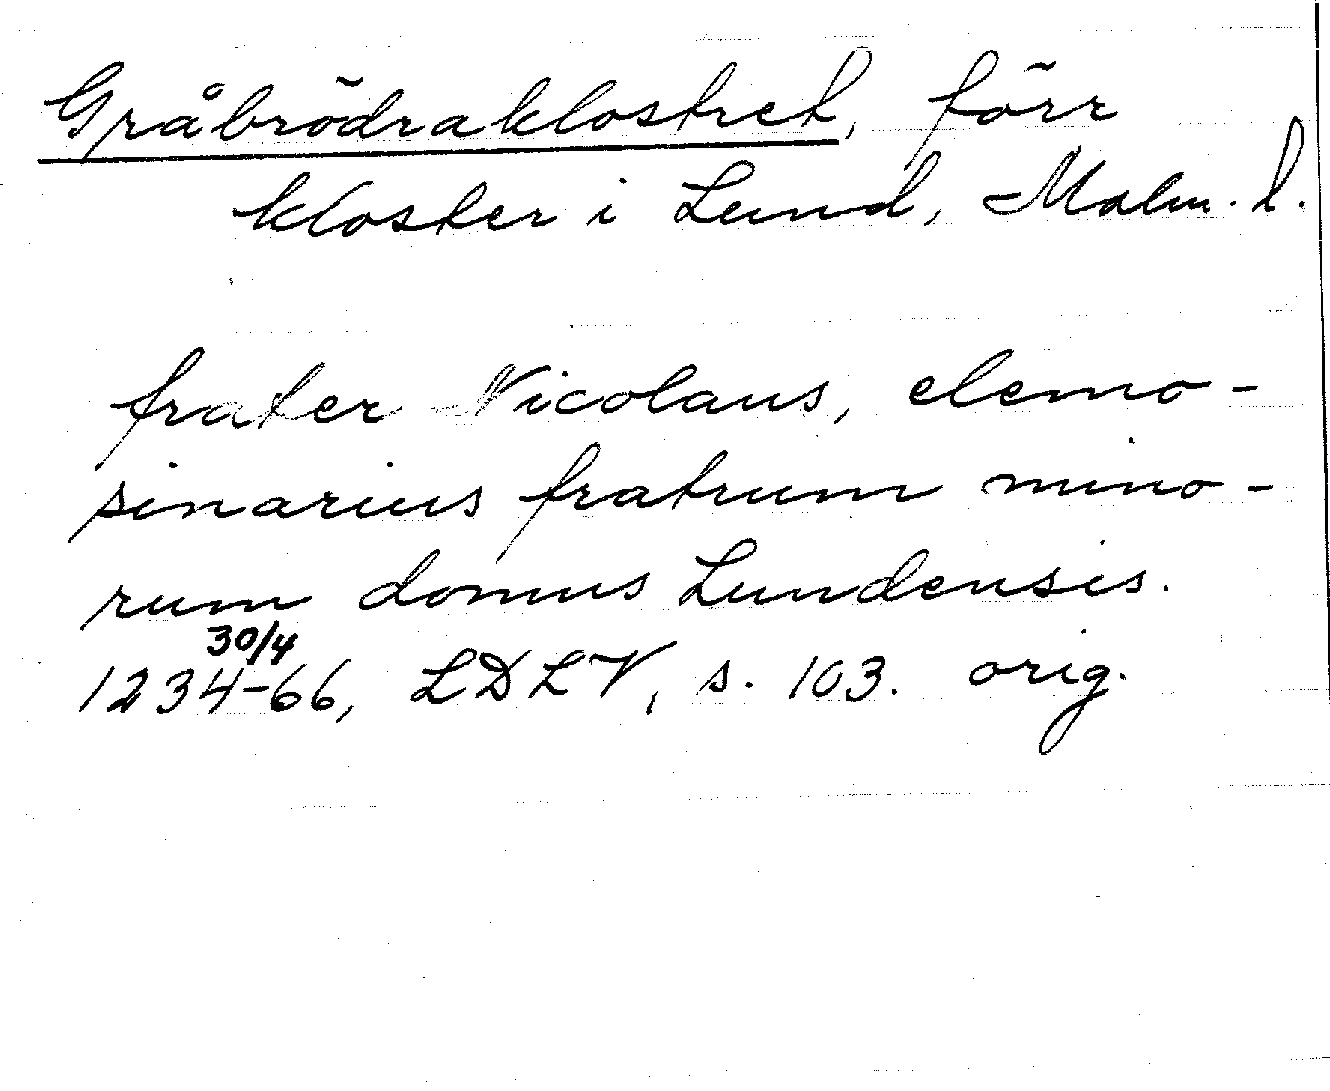 Gråbrödraklostret, förr
kloster i Lund, Malm. l.
frater Nicolaus, elemo-
sinarius fratrum mino-
rum domus Lundensis.
30/4
1234-66, LDLV, s. 103. orig.